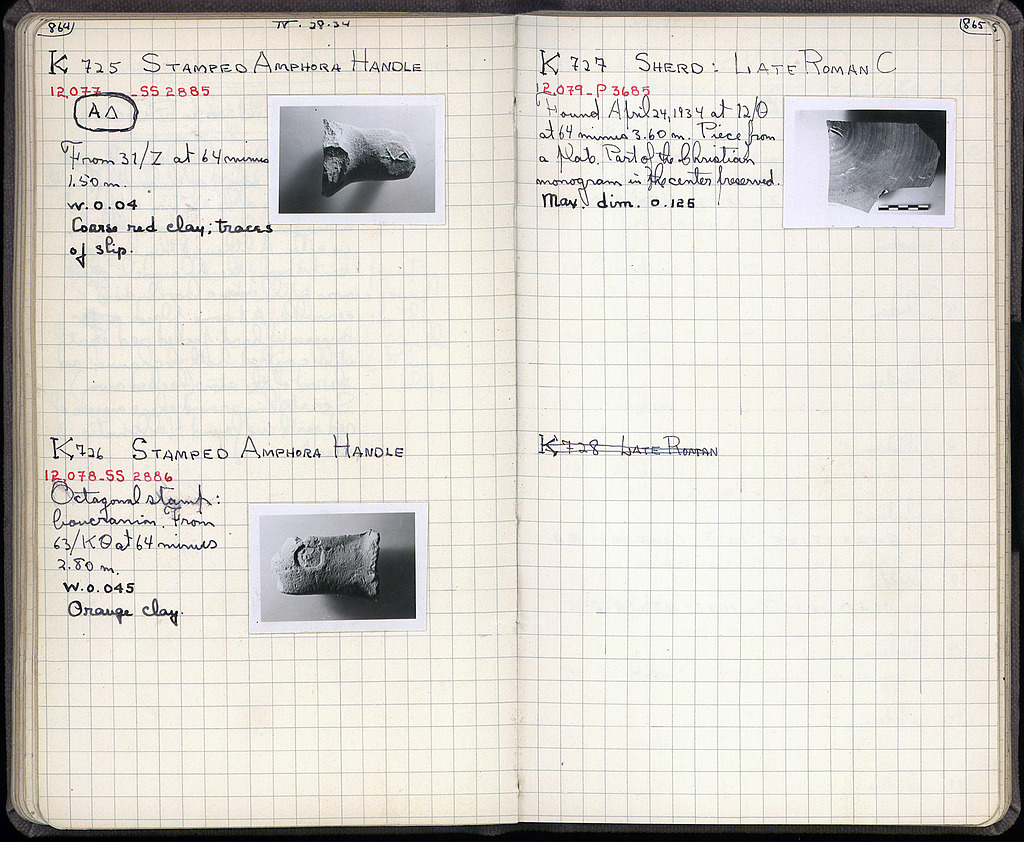 864
IV. 28.34
K 725 STAMPED AMPHORA HANDLE
12,077 _SS 2885
ΑΔ
From 31/Z at 64 minus
1.50 m.
W. 0.04
Coarse red clay; traces
of slip.
K 726 STAMPED AMPHORA HANDLE
12,078_SS 2886
Octagonal stamp:
boucranion. From
63/ΚΘ at 64 minus
2.80 m.
W. 0.045
Orange clay.
865
K 727 SHERD: LATE ROMAN C
12,079_P 3685
Found April 24, 1934 at 12/Θ
at 64 minus 3.60 m. Piece from
a flat. Part of the Christian
monogram in the center preserved.
Max. dim. 0.125
K 728 LATE ROMAN